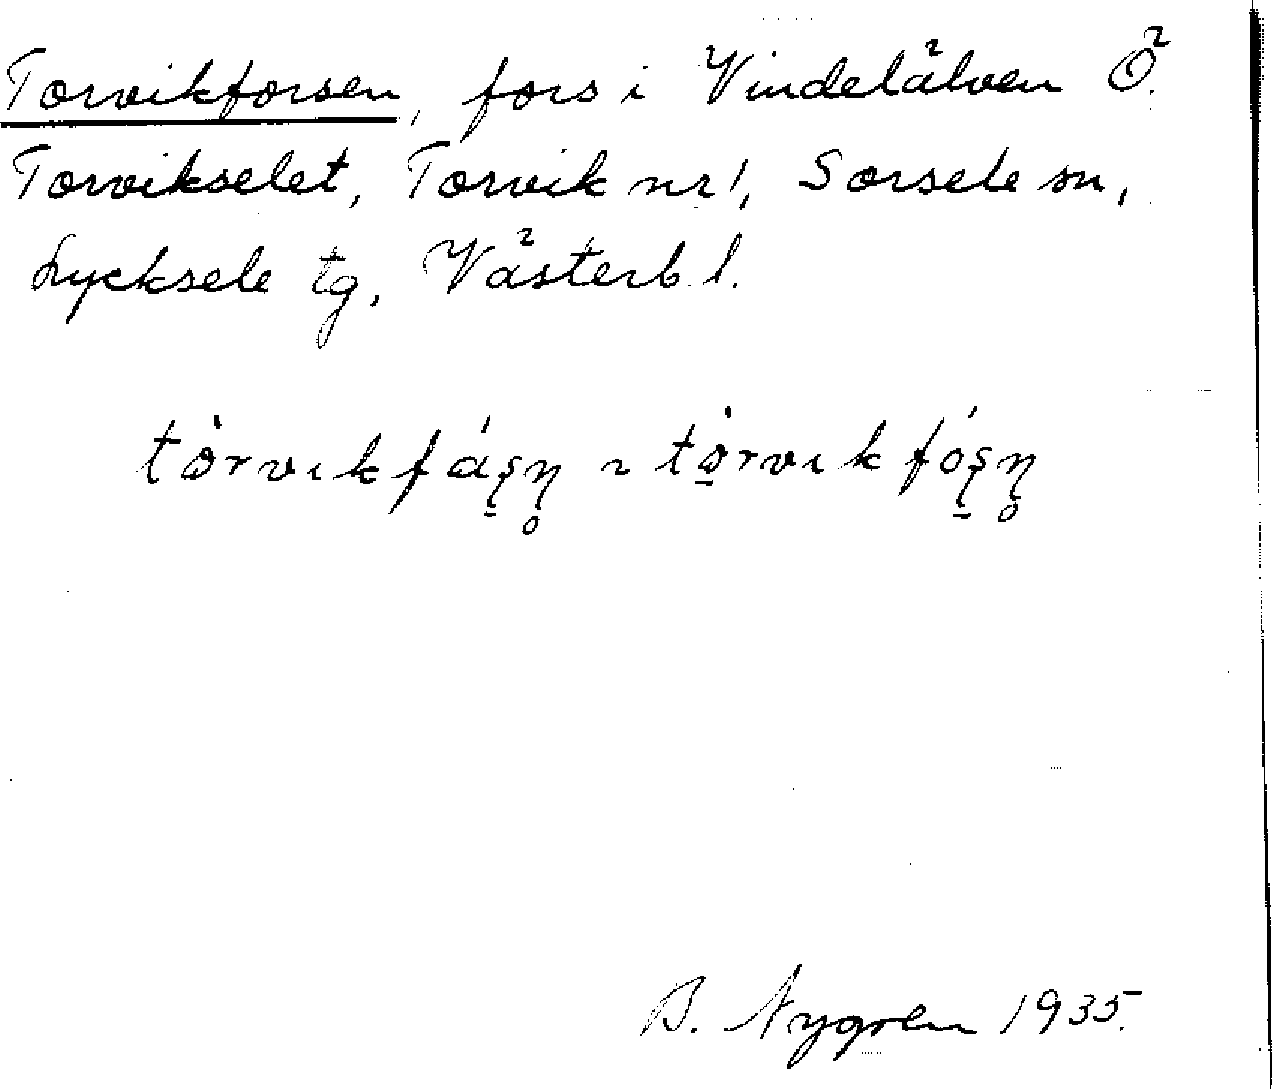 Torvikforsen, fors i Vindelälven Ö.
Torvikselet, Torvik nr 1, Sorsele sn,
Lycksele tg, Västerb. l.
B. Nygren 1935.